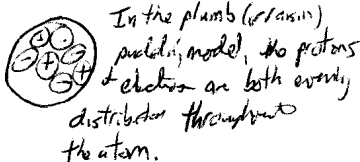 In the plumb (/raisin)
pudding model, the protons
& electrons are both evenly
distributed throughout
the atom.